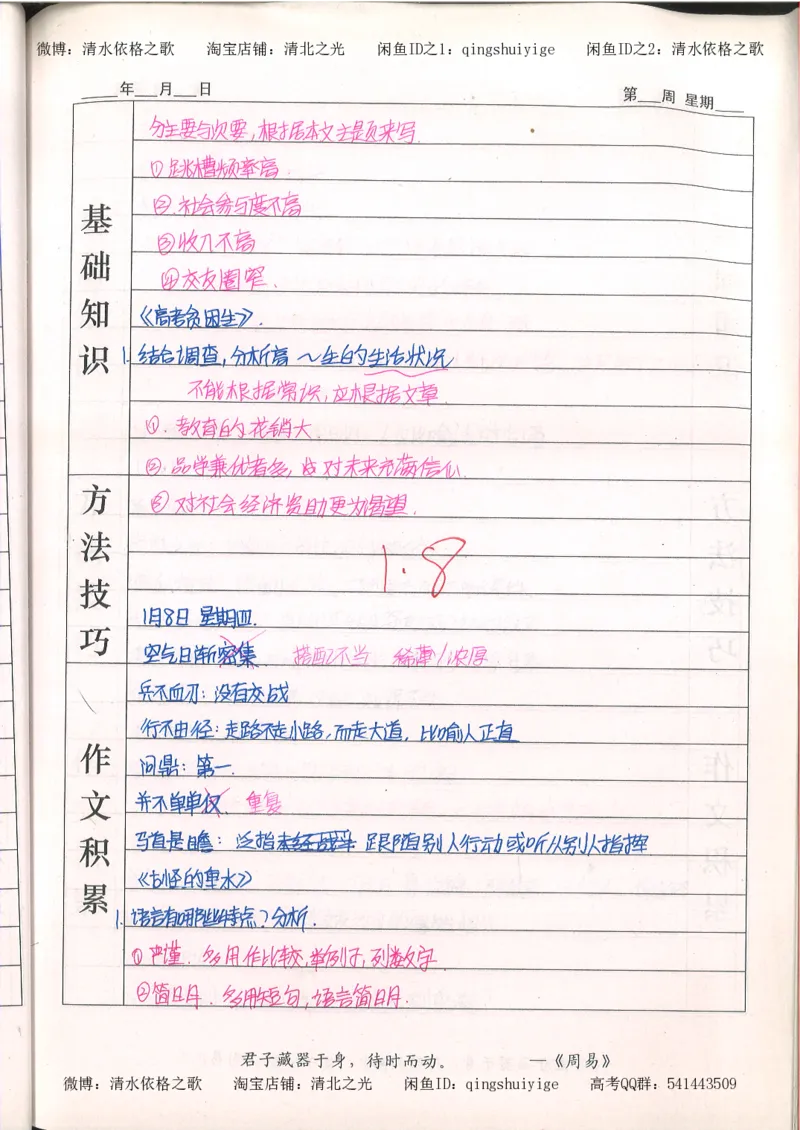 微博：清水依格之歌 淘宝店铺：清北之光 闲鱼ID之1：qingshuiyige 闲鱼ID之2：清水依格之歌
____年___月___日 第___周 星期____
基础知识
分主要与次要，根据本文主题来写.
①跳槽频率高.
②社会参与度不高
③收入不高
④交友圈窄.
《高考贫困生》.
1.结合调查，分析高～生的生活状况
不能根据常识，应根据文章.
①.教育的花销大
②.品学兼优者多，且对未来充满信心.
③对社会经济资助更为渴望.
方法技巧
1.8
1月8日 星期四.
空气日渐密集 搭配不当 稀薄/浓厚
兵不血刃：没有交战
作文积累
行不由径：走路不走小路，而走大道，比喻人正直
问鼎：第一.
并不单单仅 重复
马首是瞻：泛指未经战斗 跟随别人行动或听从别人指挥
《古怪的重水》
1.语言有哪些特点？分析.
①严谨.多用作比较，举例子，列数字
②简明.多用短句，语言简明.
君子藏器于身，待时而动。 —《周易》
微博：清水依格之歌 淘宝店铺：清北之光 闲鱼ID：qingshuiyige 高考QQ群：541443509